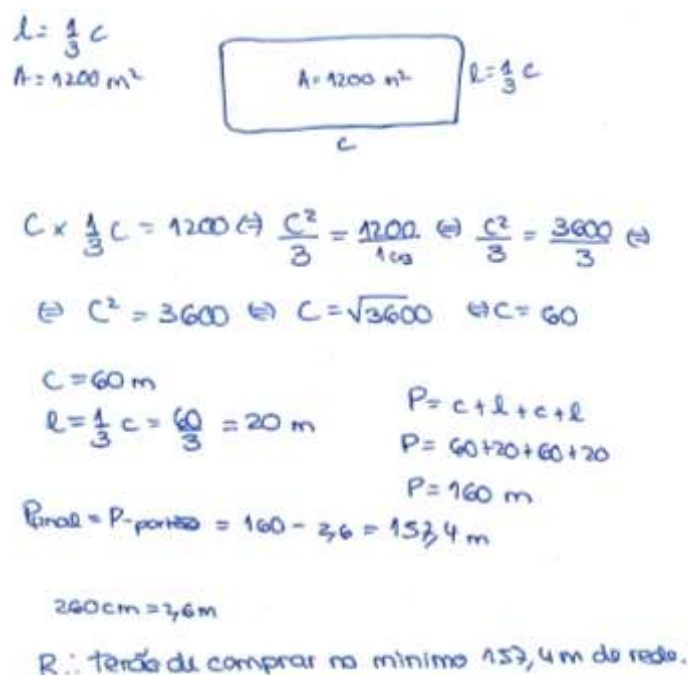 l = 1/3 c
A = 1200 m²
A = 1200 m²
l = 1/3 c
c
C × 1/3 C = 1200 (=) C²/3 = 1200/1 (3) (=) C²/3 = 3600/3 (=)
(=) C² = 3600 (=) C = √3600 (=) C = 60
C = 60 m
l = 1/3 c = 60/3 = 20 m
P = c + l + c + l
P = 60+20+60+20
P = 160 m
Pfinal = P - portão = 160 - 2,6 = 157,4 m
260cm = 2,6m
R.: terão de comprar no minimo 157,4m de rede.